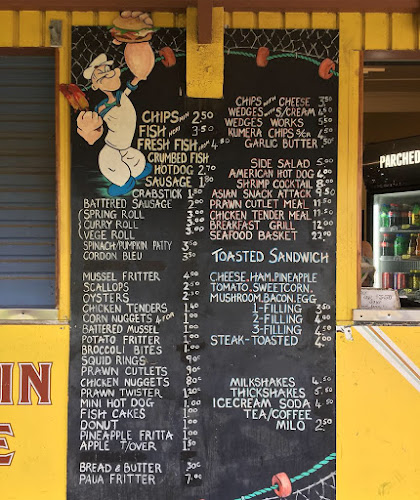 CHIPS FROM 2.50
FISH FROM 3.50
FRESH FISH FROM 4.80
CRUMBED FISH
HOTDOG 2.70
SAUSAGE 1.80
CRABSTICK 1.80
BATTERED SAUSAGE 2.00
SPRING ROLL
CURRY ROLL 3.00
VEGE ROLL
SPINACH/PUMPKIN PATTY 3.50
CORDON BLEU 3.50
MUSSEL FRITTER 4.00
SCALLOPS 2.50
OYSTERS 2.30
CHICKEN TENDERS 1.40
CORN NUGGETS 4 FOR 1.00
BATTERED MUSSEL 1.00
POTATO FRITTER 1.00
BROCCOLI BITES 1.00
SQUID RINGS 90c
PRAWN CUTLETS 90c
CHICKEN NUGGETS 80c
PRAWN TWISTER 1.20
MINI HOT DOG 1.00
FISH CAKES 1.00
DONUT 1.00
PINEAPPLE FRITTA 1.80
APPLE T/OVER 1.50
BREAD & BUTTER 30c
PAUA FRITTER 7.00
CHIPS WITH CHEESE 3.50
WEDGES WITH S/CREAM 4.50
WEDGES WORKS 5.50
KUMERA CHIPS S/CR 4.50
GARLIC BUTTER .50
SIDE SALAD 5.00
AMERICAN HOT DOG 4.00
SHRIMP COCKTAIL 8.00
ASIAN SNACK ATTACK 9.50
PRAWN CUTLET MEAL 11.50
CHICKEN TENDER MEAL 11.50
BREAKFAST GRILL 12.00
SEAFOOD BASKET 22.00
TOASTED SANDWICH
CHEESE.HAM.PINEAPPLE
TOMATO.SWEETCORN.
MUSHROOM.BACON.EGG
1-FILLING 3.50
2-FILLING 4.00
3-FILLING 4.50
STEAK-TOASTED 4.00
MILKSHAKES 4.50
THICKSHAKES 5.50
ICECREAM SODA 4.50
TEA/COFFEE
MILO 2.50
PARCHED
IN
E